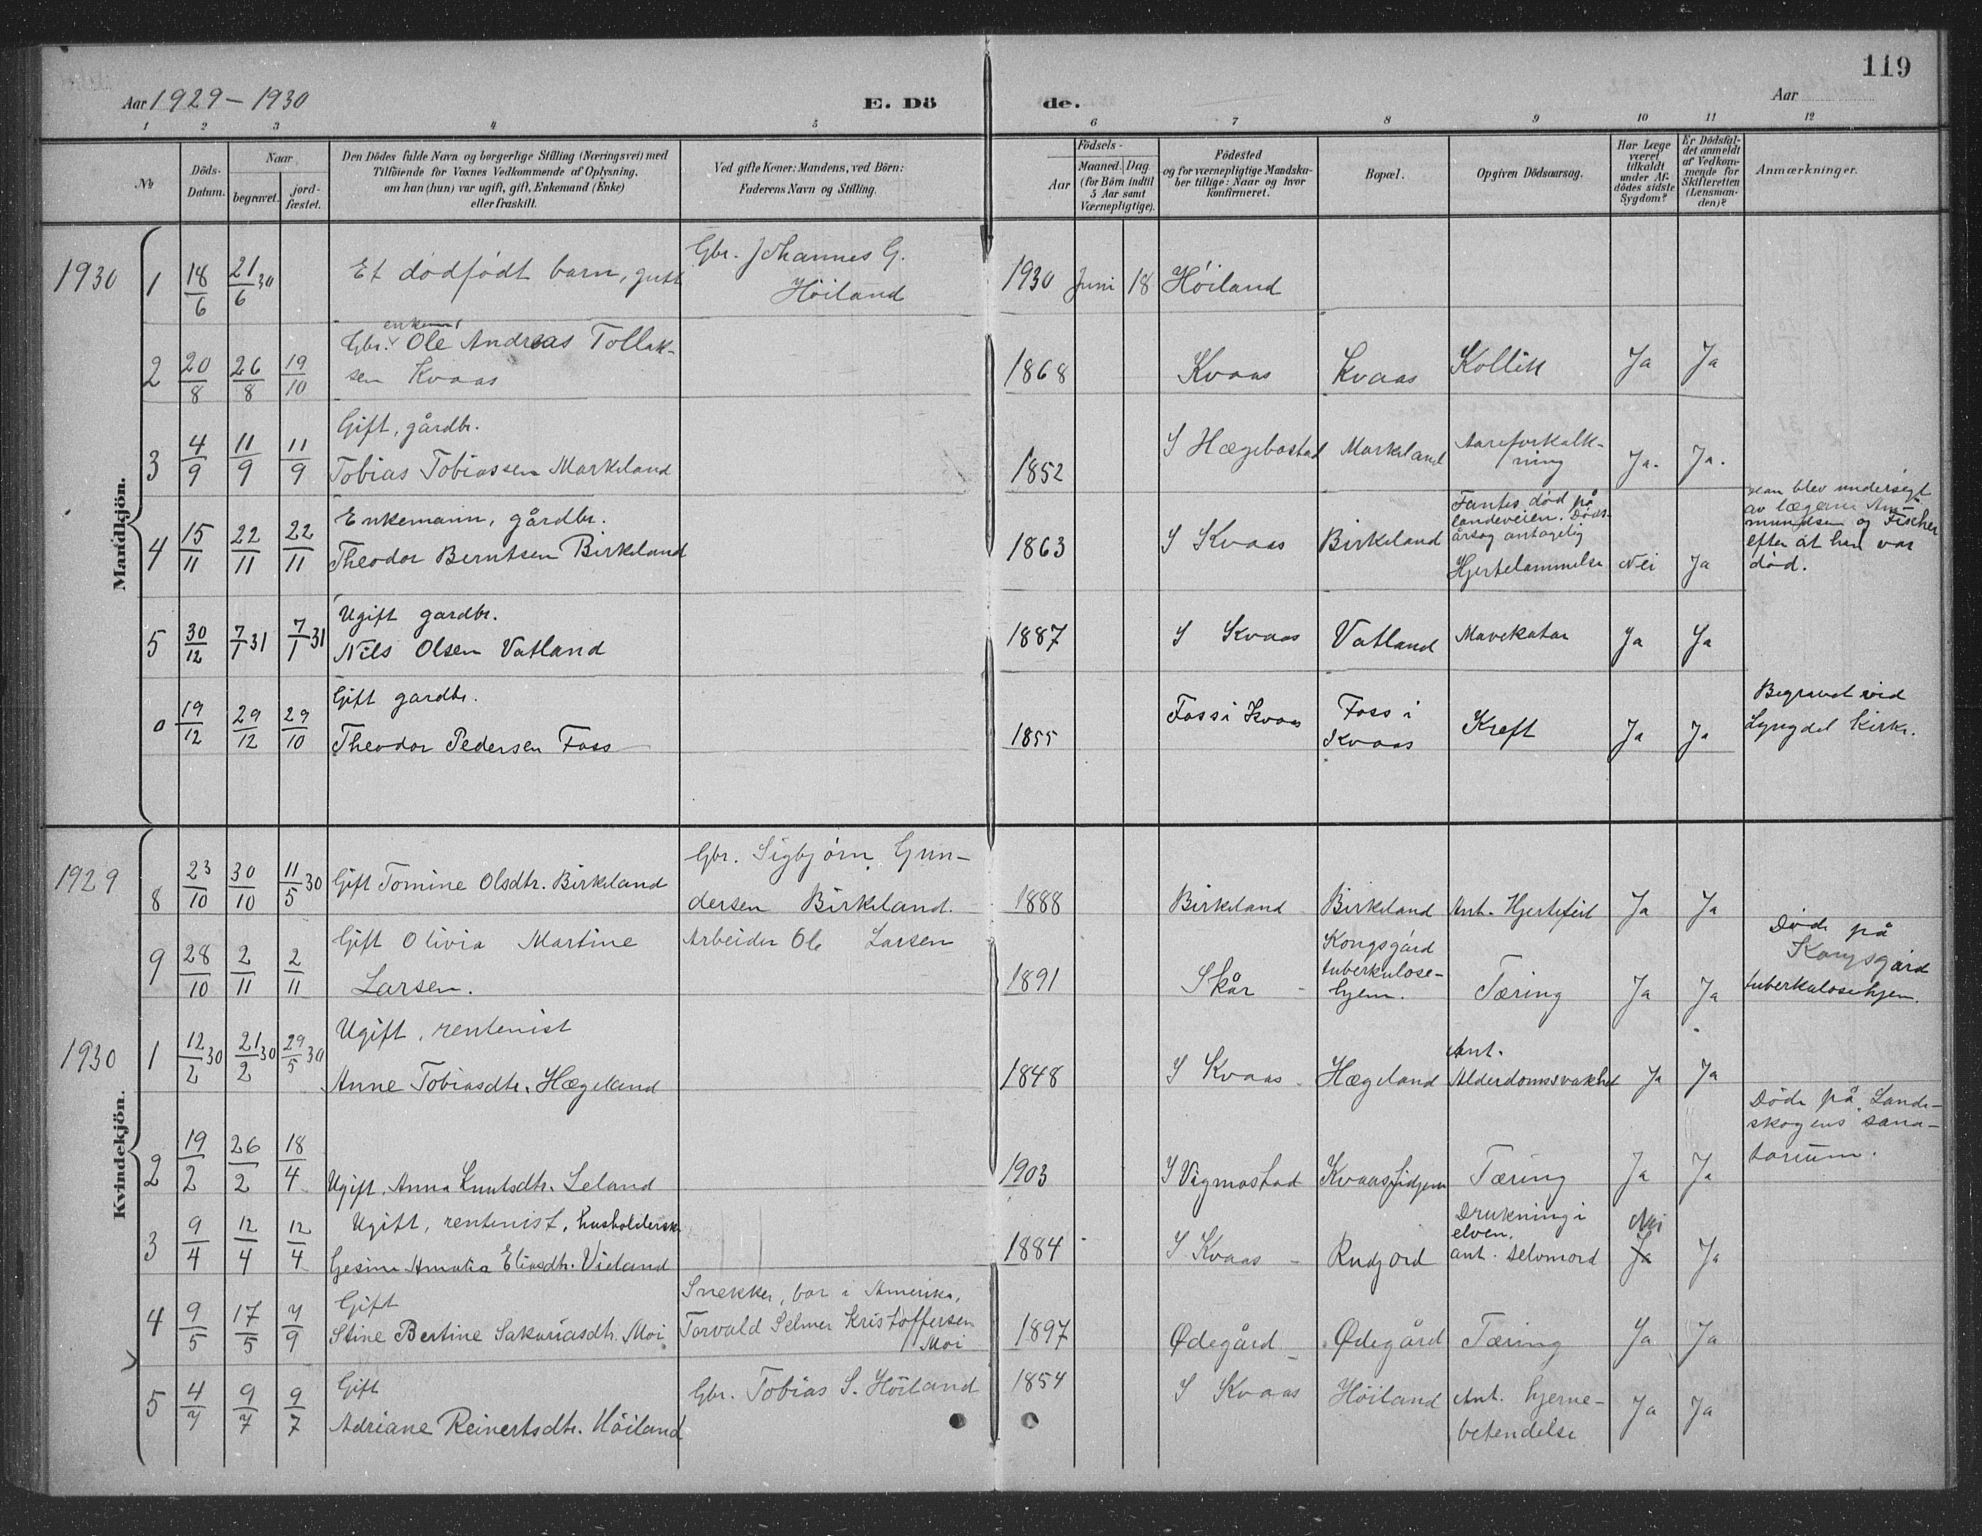 119
Aar 1929 - 1930
E. Dö
de.
Aar
1 2 3 4 5 6 7 8 9 10 11 12
No
Döds-
Datum.
Naar
begravet.
jord-
fæstet.
Den Dödes fulde Navn og borgerlige Stilling (Næringsvei) med
Tilföiende for Voxnes Vedkommende af Oplysning,
om han (hun) var ugift, gift, Enkemand (Enke)
eller fraskilt.
Ved gifte Koner: Mandens, ved Börn:
Faderens Navn og Stilling.
Födsels-
Aar
Maaned. Dag
(for Börn indtil
5 Aar samt
Værnepligtige).
Födested
og for værnepligtige Mandska-
ber tillige: Naar og hvor
konfirmeret.
Bopæl.
Opgiven Dödsaarsag.
Har Læge
været
tilkaldt
under Af-
dödes sidste
Sygdom?
Er Dödsfal-
det anmeldt
af Vedkom-
mende for
Skifteretten
(Lensman-
den)?
Anmærkninger.
Mandkjön.
1930 1 18/6 21/6 30 Et dødfødt barn, gutt Gbr. Johannes G.
Höiland 1930 Juni 18 Höiland
2 20/8 26/8 19/10 Gbr. enkem. Ole Andreas Tollak-
sen Kvaas 1868 Kvaas Kvaas Kollik Ja Ja
3 4/9 11/9 11/9 Gift, gårdbr.
Tobias Tobiassen Markeland 1852 I Hægebostad Markeland Aareforkalk-
ning Ja. Ja.
4 15/11 22/11 22/11 Enkemann, gårdbr.
Theodor Berntsen Birkeland 1863 I Kvaas Birkeland Fantes død på
landeveien. Døds-
årsag antagelig
Hjertelammelse Nei Ja
Han blev undersøgt
av lægerne Am-
mundsen og Fischer
efter at han var
død.
5 30/12 7/1 31 7/1 31 Ugift gardbr.
Nils Olsen Vatland 1887 I Kvaas Vatland Mavekatar Ja Ja
0 19/12 29/12 29/10 Gift gardbr.
Theodor Pedersen Foss 1855 Foss i Kvaas Foss i
Kvaas Kreft Ja Ja Begravet ved
Lyngdal Kirke.
Kvindekjön.
1929 8 23/10 30/10 11/5 30 Gift Tomine Olsdtr. Birkeland Gbr. Sigbjørn Gun-
dersen Birkeland. 1888 Birkeland Birkeland Ant. Hjertefeil Ja Ja
9 28/10 2/11 2/11 Gift Olivia Martine
Larsen. Arbeider Ole Larsen 1891 Skår Kongsgård
tuberkulose-
hjem. Tæring Ja Ja Døde på
Kongsgård
tuberkulosehjem.
1930 1 12/2 30 21/2 30 29/5 30 Ugift, rentenist
Anne Tobiasdtr. Hægeland 1848 I Kvaas Hægeland Ant.
Alderdomssvakhet Ja Ja
2 19/2 26/2 18/4 Ugift, Anna Knutsdtr. Leland 1903 I Vigmostad Tæring Ja Ja Døde på Lands-
skogens sana-
torium.
3 9/4 12/4 12/4 Ugift, rentenist, husholderske
Gesine Amalia Eliasdtr. Vieland 1884 I Kvaas Rudjord Drukning i
elven,
ant. selvmord Nei Ja
4 9/5 17/5 7/9 Gift
Stine Bertine Sakariasdtr. Moi Snekker, bor i Amerika,
Torvald Selmer Kristoffersen
Moi 1897 Ødegård Ødegård Tæring Ja Ja
5 4/7 9/7 9/7 Gift
Adriane Reinertsdtr. Höiland Gbr. Tobias S. Höiland 1854 I Kvaas Höiland Ant. hjerne-
betendelse Ja Ja